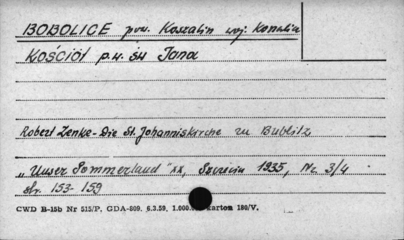 BOBOLICE pow. Koszalin woj. Koszalin
Kościół p.w. św Jana
Robert Zenke - Die St. Johanniskirche zu Bublitz
„Unser Pommerland" XX, Szczecin 1935, Nr 3/4
str. 153-159
CWD B-15b Nr 515/P. GDA-809. 6.3.59. 1.000.000 karton 180/V.